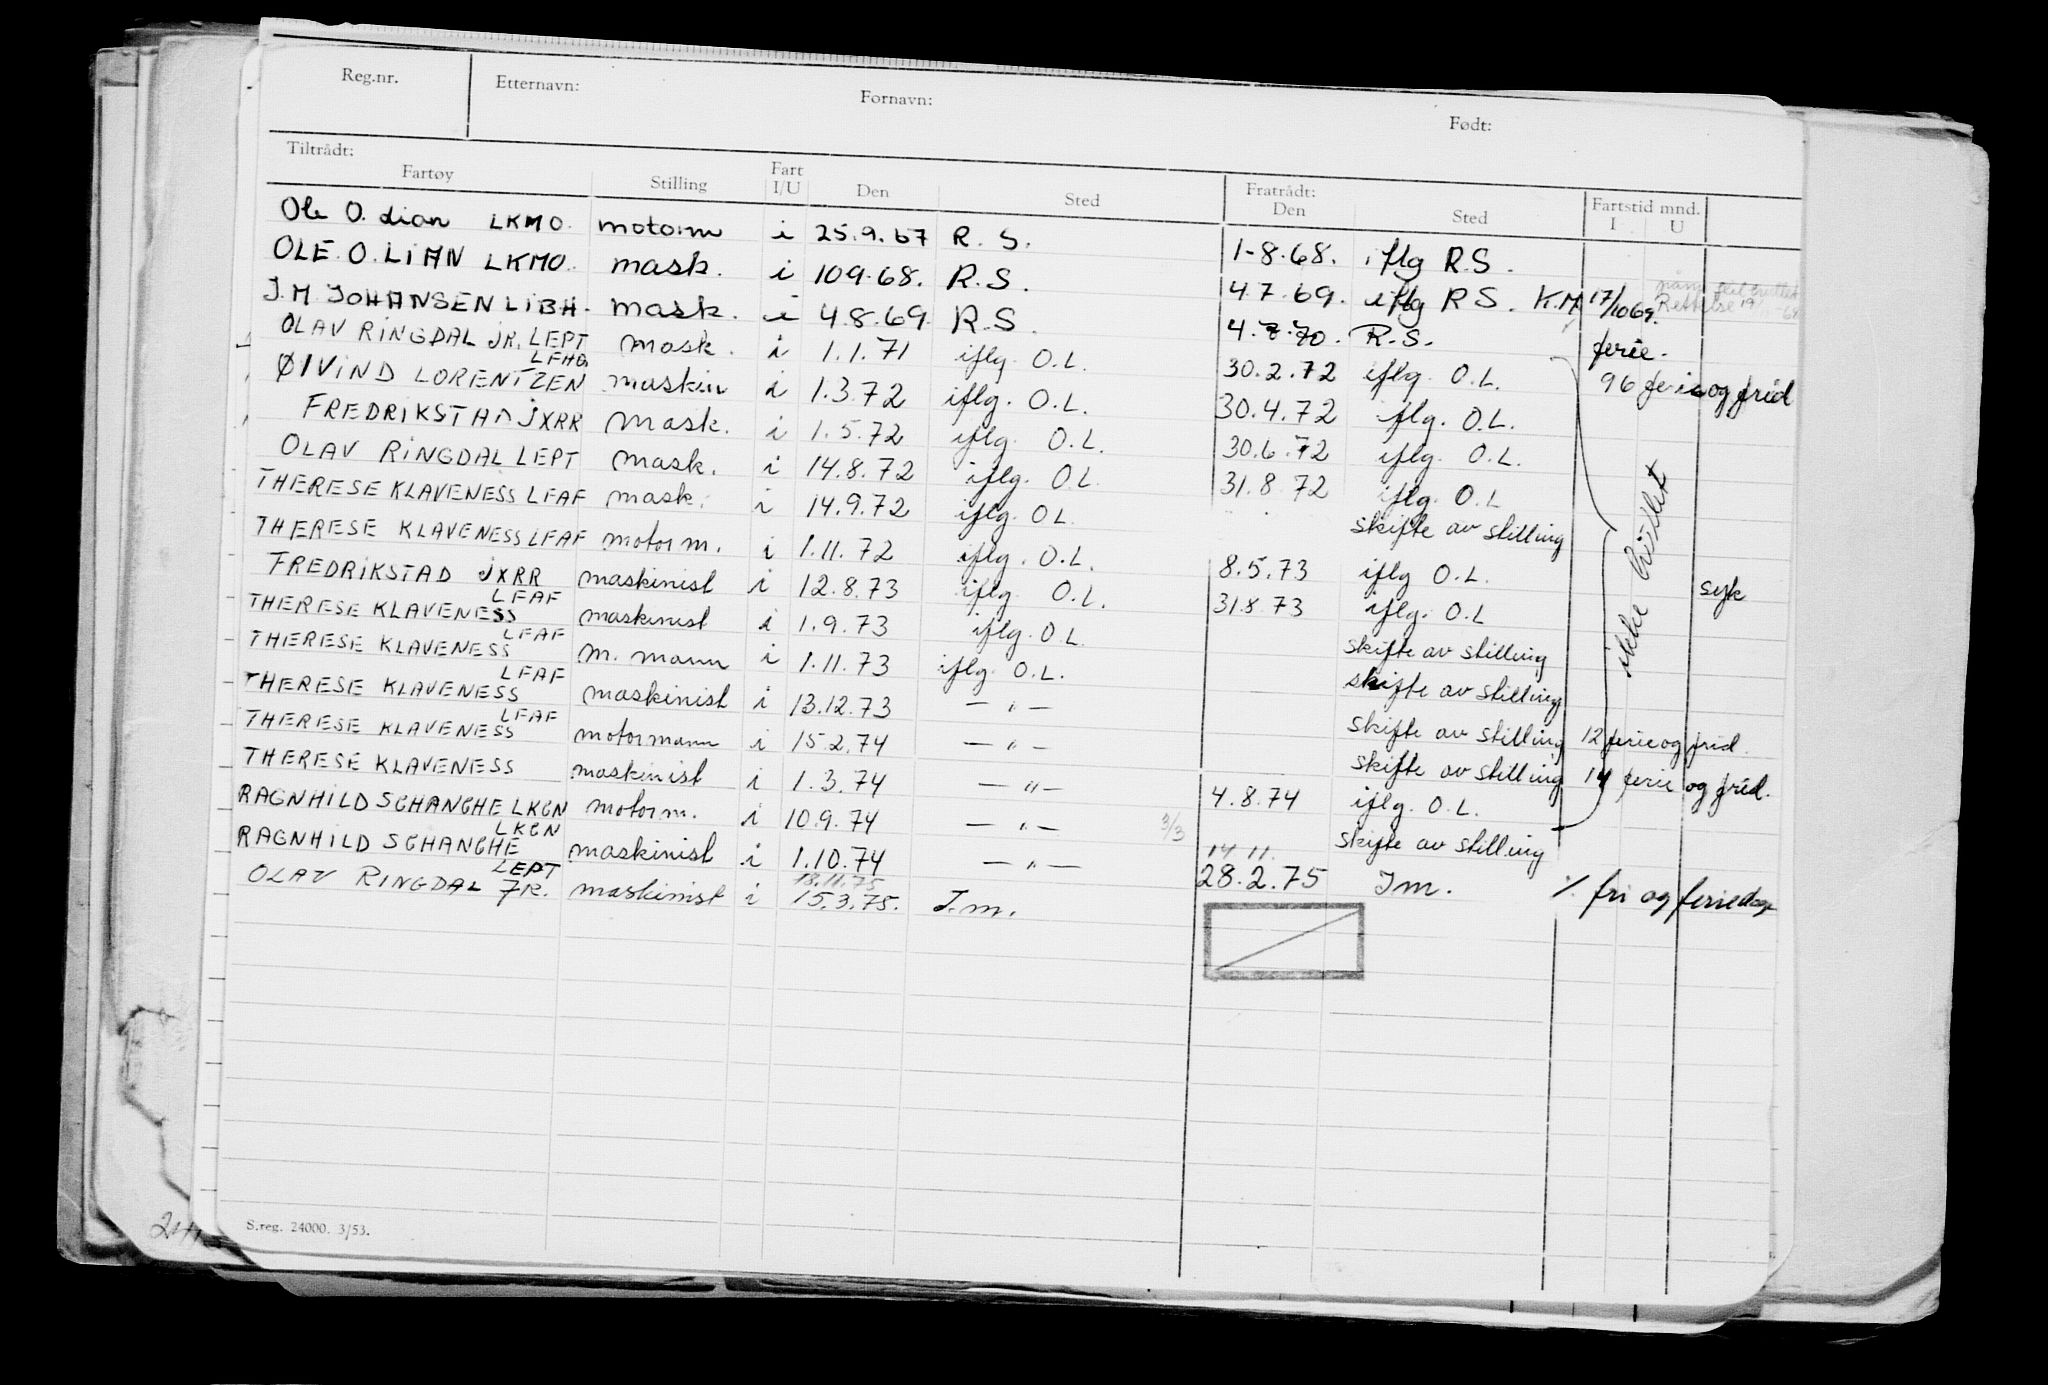 Reg.nr. Etternavn: Fornavn: Født:
Tiltrådt: Fratrådt: Fartstid mnd.
Fartøy Stilling Fart I/U Den Sted Den Sted I U
Ole O. Lian LKMO. motorm i 25.9.67 R. S. 1-8.68. iflg R.S.
OLE. O. LIAN LKMO. mask. i 10.9.68. R.S. 4.7.69. iflg R S. K.M 17/10 69. Rettelse
J.M. JOHANSEN LIBH. mask. i 4.8.69. R.S. 4.7.70. R.S. ferie.
OLAV RINGDAL JR. LEPT mask. i 1.1.71 iflg. O.L. 30.2.72 iflg. O.L. 96 ferie og frid
ØIVIND LORENTZEN LFHG maskin i 1.3.72 iflg. O.L. 30.4.72 iflg. O.L.
FREDRIKSTAD JXRR mask. i 1.5.72 iflg. O.L. 30.6.72 iflg. O.L.
OLAV RINGDAL LEPT mask. i 14.8.72 iflg. O.L. 31.8.72 iflg. O.L
THERESE KLAVENESS LFAF mask. i 14.9.72 iflg. O L. skifte av stilling
THERESE KLAVENESS LFAF motorm. i 1.11.72 iflg. O.L. 8.5.73 iflg O.L. syk
FREDRIKSTAD JXRR maskinist i 12.8.73 iflg. O.L. 31.8.73 iflg. O.L
THERESE KLAVENESS LFAF maskinist i 1.9.73 iflg. O.L. skifte av stilling
THERESE KLAVENESS LFAF m. mann i 1.11.73 iflg. O.L. skifte av stilling
THERESE KLAVENESS LFAF maskinist i 13.12.73 — " — skifte av stilling 12 ferie og frid.
THERESE KLAVENESS LFAF motormann i 15.2.74 — " — skifte av stilling 14 ferie og frid.
THERESE KLAVENESS maskinist i 1.3.74 — " — 4.8.74 iflg. O.L.
RAGNHILD SCHANCHE LKGN motorm. i 10.9.74 — " — 3/3 skifte av stilling
RAGNHILD SCHANCHE LKGN maskinist i 1.10.74 — " — 28.2.75 I m. % fri og feriedage
OLAV RINGDAL JR. LEPT maskinist i 15.3.75. I.m.
18.11.75
14 11.
ikke
S.reg. 24000. 3/53.